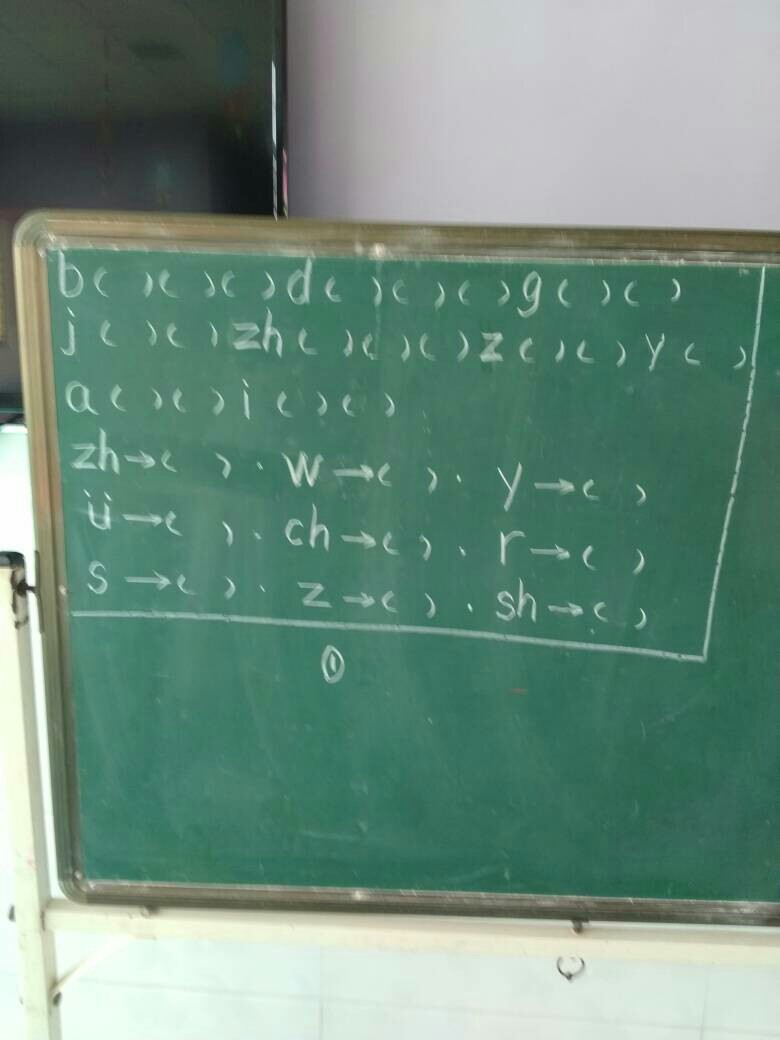 b( )( )( )d( )( )( )g( )( )
j( )( )zh( )( )( )z( )( )y( )
a( )( )i( )( )
zh→( ). w→( ). y→( )
ü→( ). ch→( ). r→( )
s→( ). z→( ). sh→( )
①